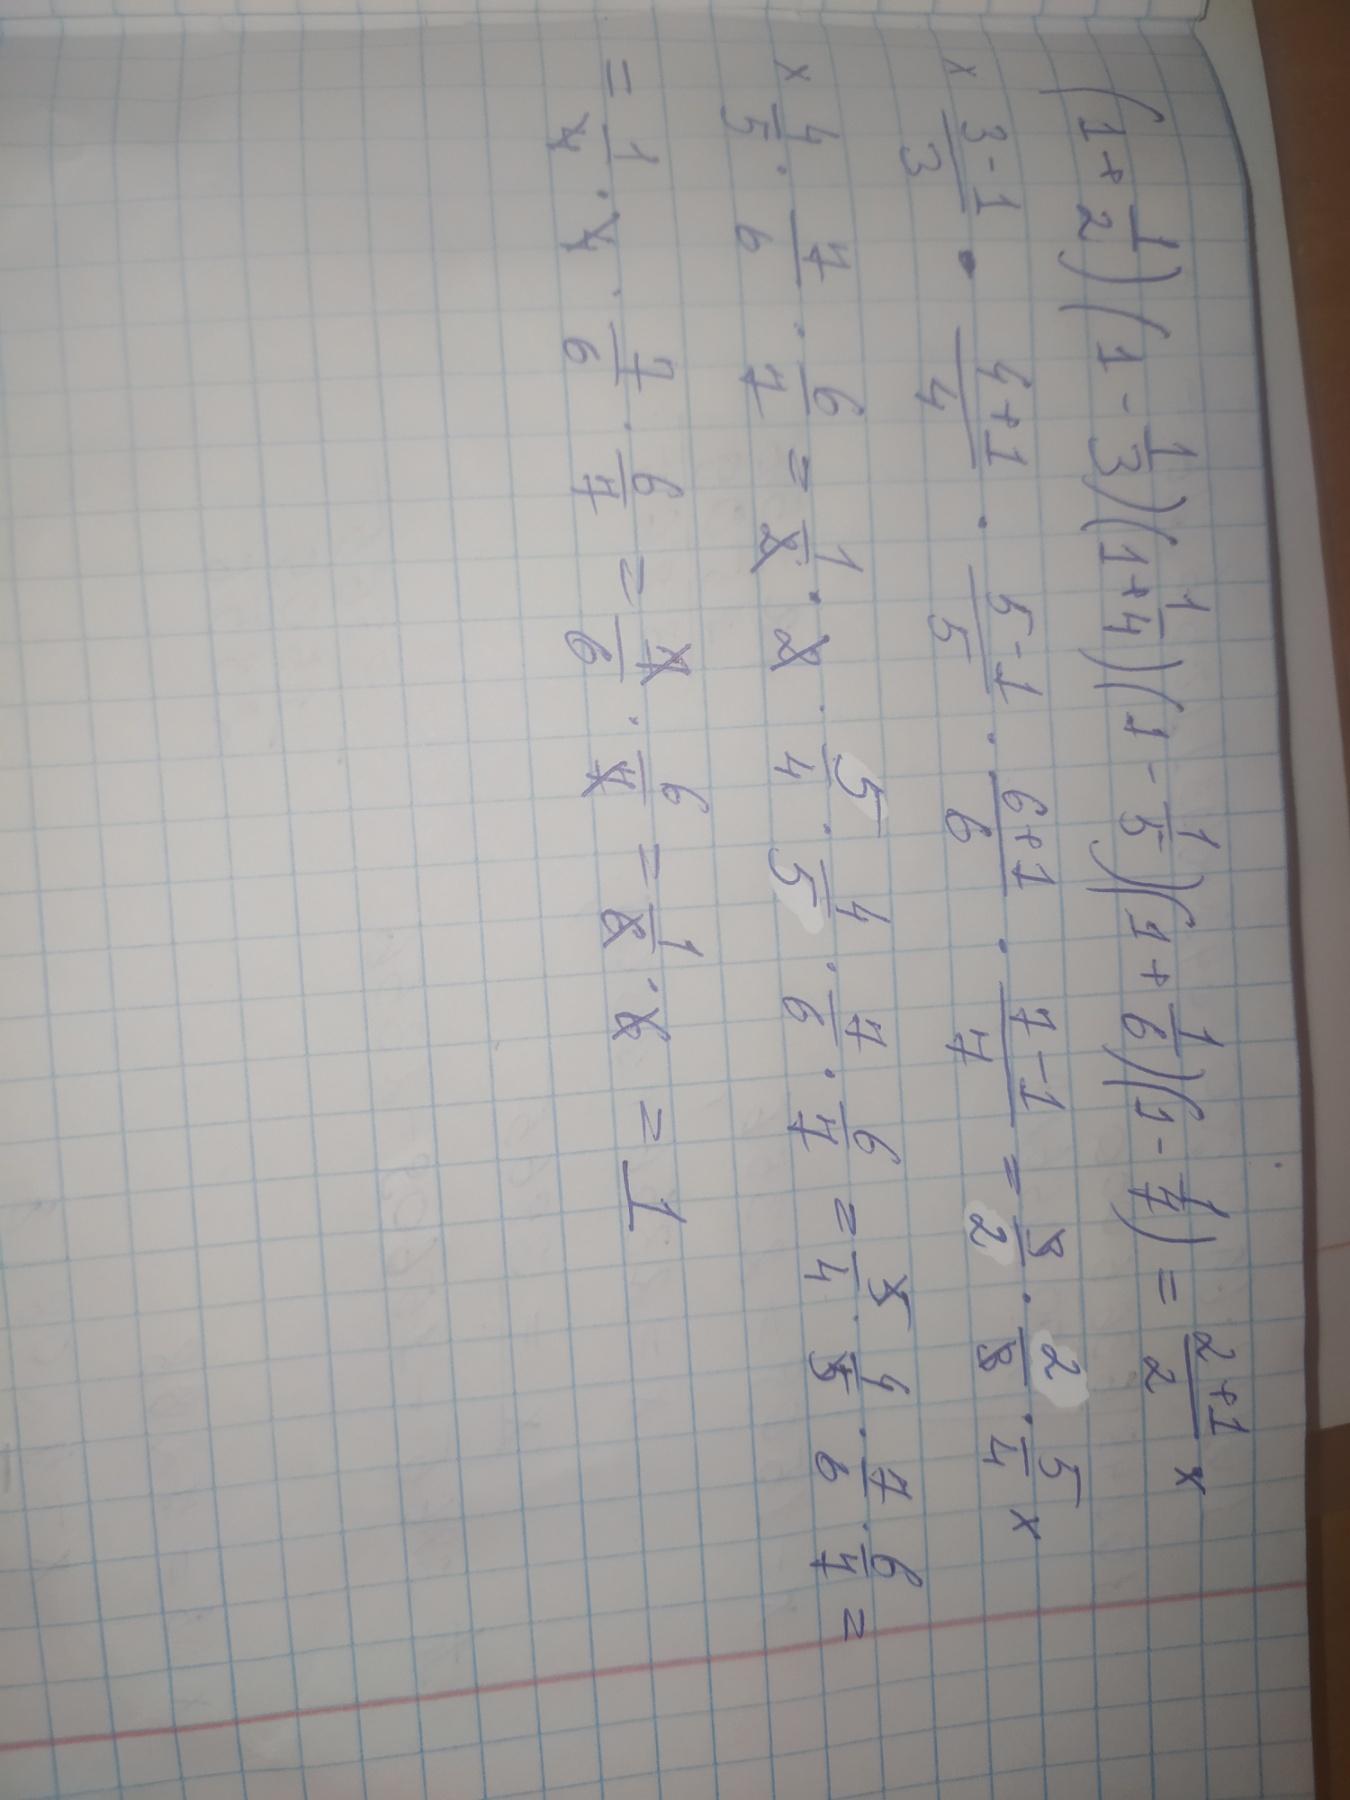 (1+1/2)(1-1/3)(1+1/4)(1-1/5)(1+1/6)(1-1/7) = 2+1/2 x
x 3-1/3 · 4+1/4 · 5-1/5 · 6+1/6 · 7-1/7 = 3/2 · 2/3 · 5/4 x
x 4/5 · 7/6 · 6/7 = 1/2 · 2 · 5/4 · 4/5 · 7/6 · 6/7 = 5/4 · 4/5 · 7/6 · 6/7 =
= 1/4 · 4 · 7/6 · 6/7 = 7/6 · 6/7 = 1/6 · 6 = 1